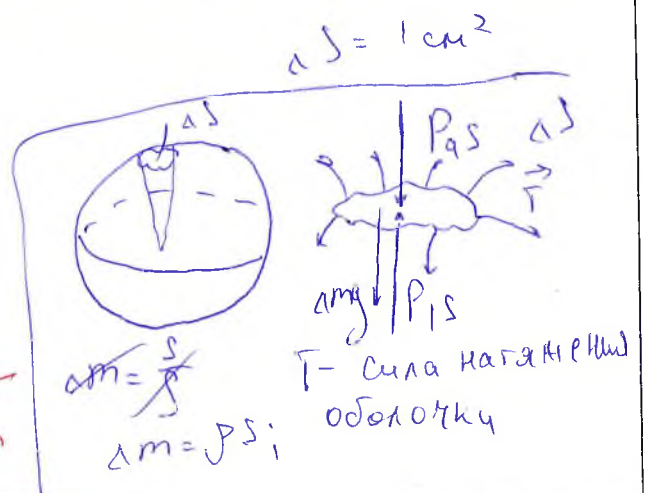 ΔS = 1 см²
ΔS
PₐS
ΔS
T⃗
Δmg
P₁S
Δm = S/ρ
Δm = ρS;
T - сила натяжения
оболочки